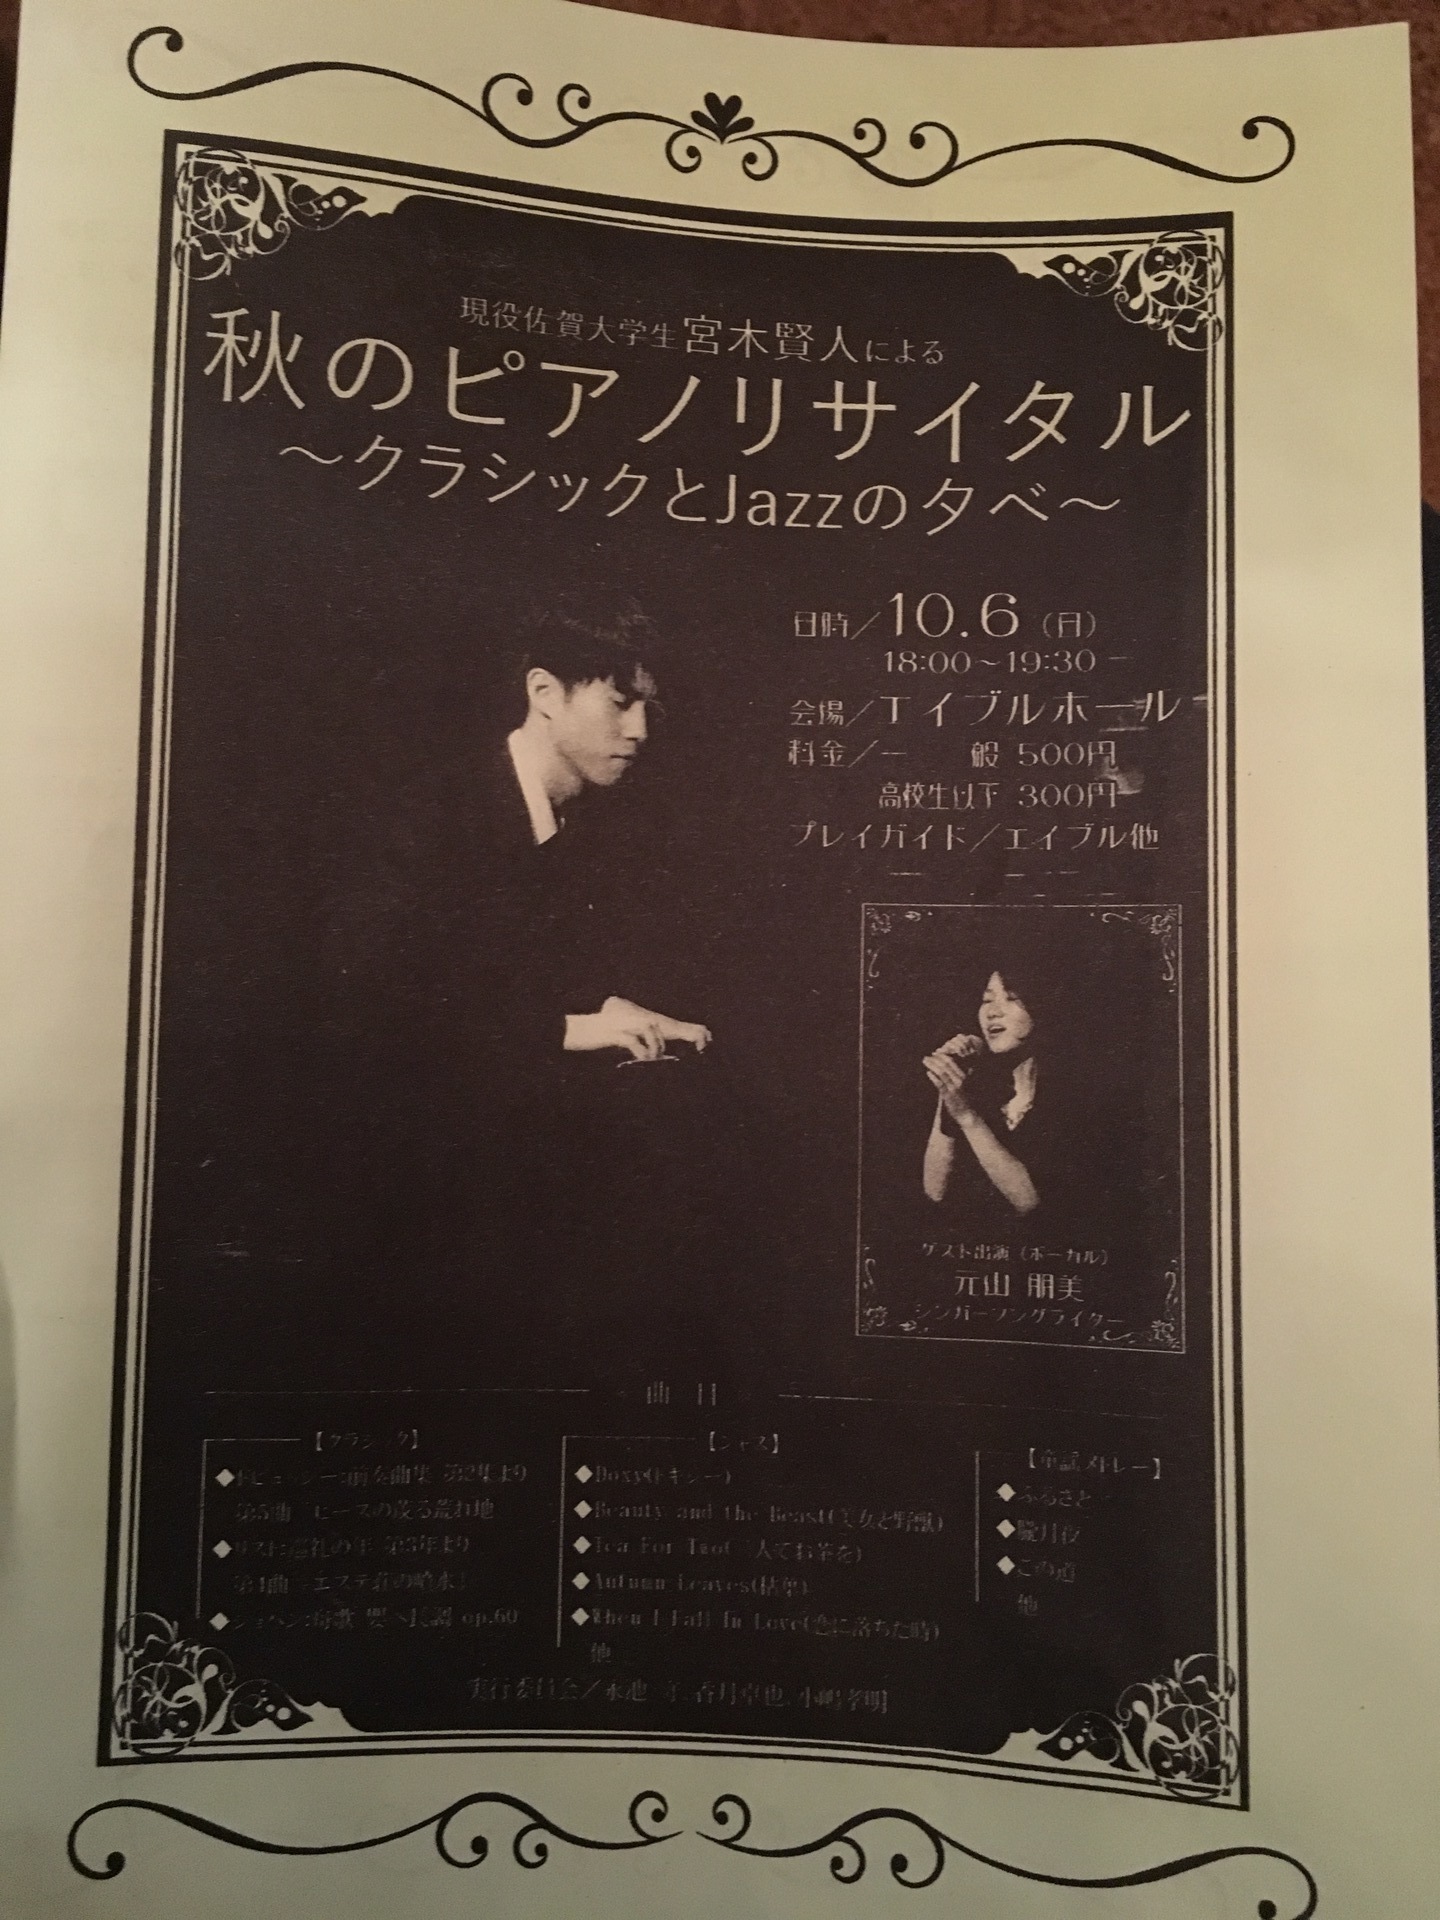 現役佐賀大学生宮木賢人による
秋のピアノリサイタル
～クラシックとJazzの夕べ～
日時／10.6（日）
18:00～19:30
会場／エイブルホール
料金／一　般 500円
高校生以下 300円
プレイガイド／エイブル他
ゲスト出演（ボーカル）
元山 朋美
シンガーソングライター
曲 目
【クラシック】
◆ドビュッシー:前奏曲集 第2集より
第5曲 ヒースの茂る荒れ地
◆リスト:巡礼の年 第3年より
第4曲 エステ荘の噴水
◆ショパン:舟歌 嬰ヘ長調 op.60
【ジャズ】
◆Doxy(ドキシー)
◆Beauty and the Beast(美女と野獣)
◆Tea For Two(二人でお茶を)
◆Autumn Leaves(枯葉)
◆When I Fall In Love(恋に落ちた時)
他
【童謡メドレー】
◆ふるさと
◆朧月夜
◆この道
他
実行委員会／永池 香月卓也、小嶋孝明